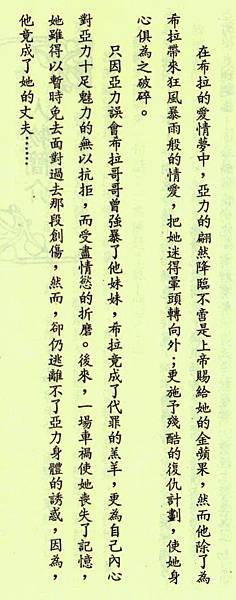 在希拉的愛情夢中，亞力的翩然降臨不啻是上帝賜給她的金蘋果，然而他除了為
希拉帶來狂風暴雨般的情愛，把她迷得暈頭轉向外；更施予殘酷的復仇計劃，使她身
心俱為之破碎。
只因亞力誤會希拉哥哥曾強暴了他妹妹，希拉竟成了代罪的羔羊，更為自己內心
對亞力十足魅力的無以抗拒，而受盡情慾的折磨。後來，一場車禍使她喪失了記憶，
她雖得以暫時免去面對過去那段創傷，然而，卻仍逃離不了亞力身體的誘惑，因為，
他竟成了她的丈夫……